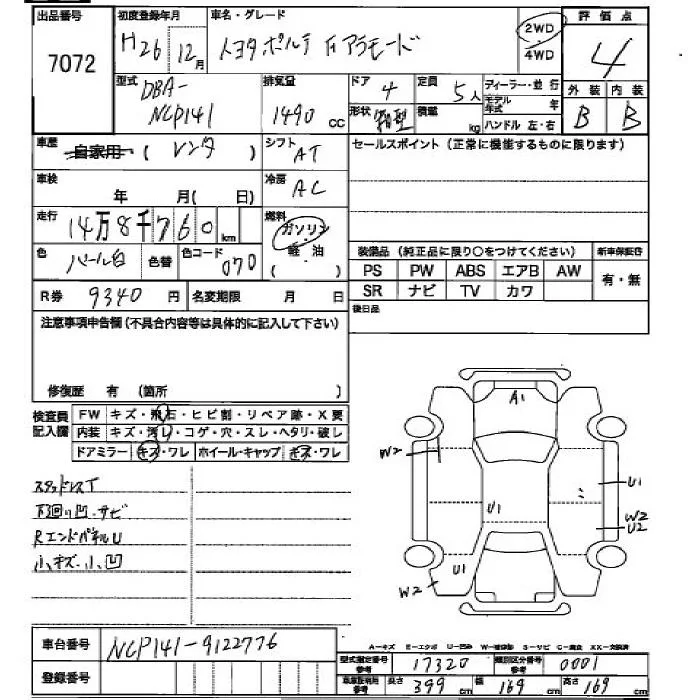 出品番号 初度登録年月 車名・グレード 2WD 評価点
7072 H26 12月 トヨタポルテ F アラモード 4WD 4
型式 DBA-NCP141 排気量 1490 cc ドア 4 定員 5人 ディーラー・並行 外装 内装
形状 箱型 積載 kg モデル年式 年 B B
ハンドル 左・右
車歴 自家用 ( レンタ ) シフト AT セールスポイント (正常に機能するものに限ります)
車検 年 月(日) 冷房 AC
走行 14万8千760km 燃料 ガソリン 軽油
色 パール白 色替 色コード 070 ( )
装備品 (純正品に限り○をつけてください) 新車保証書
PS PW ABS エアB AW 有・無
SR ナビ TV カワ
R券 9340円 名変期限 月 日 後日品
注意事項申告欄 (不具合内容等は具体的に記入して下さい)
修復歴 有 (箇所 )
検査員記入欄 FW キズ・飛石・ヒビ割・リペア跡・X要
内装 キズ・汚レ・コゲ・穴・スレ・ヘタリ・破レ
ドアミラー キズ・ワレ ホイール・キャップ キズ・ワレ
スタッドレスT
下回り凹・サビ
RエンドパネルU
小キズ・小凹
A1
W2
U1
U1
W2
U2
U1
W2
A=キズ E=エクボ U=凹み W=補修跡 S=サビ C=腐食 XX=交換済
車台番号 NCP141-9122776
登録番号
型式指定番号 参考 17320 類別区分番号 参考 0001
車検証明用 参考 長さ 399 cm 幅 169 cm 高さ 169 cm